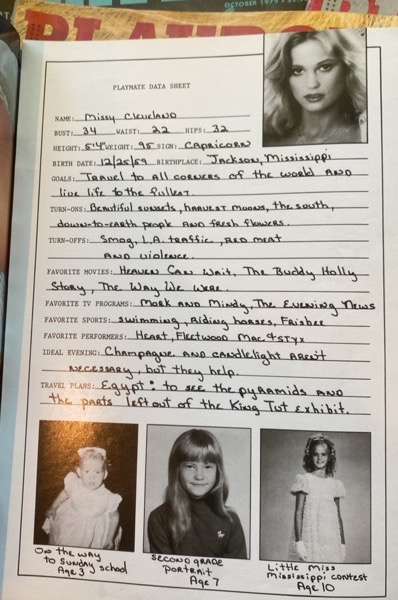 OCTOBER 1979
PLAYBO
PLAYMATE DATA SHEET
NAME: Missy Cleveland
BUST: 34 WAIST: 22 HIPS: 32
HEIGHT: 5'4" WEIGHT: 95 SIGN: Capricorn
BIRTH DATE: 12/25/59 BIRTHPLACE: Jackson, Mississippi
GOALS: Travel to all corners of the world and
live life to the fullest.
TURN-ONS: Beautiful sunsets, harvest moons, the south,
down-to-earth people and fresh flowers.
TURN-OFFS: Smog, L.A. traffic, red meat
and violence.
FAVORITE MOVIES: Heaven Can Wait, The Buddy Holly
Story, The Way We Were.
FAVORITE TV PROGRAMS: Mork and Mindy, The Evening News
FAVORITE SPORTS: Swimming, Riding horses, Frisbee
FAVORITE PERFORMERS: Heart, Fleetwood Mac & Styx
IDEAL EVENING: Champagne and candlelight aren't
necessary, but they help.
TRAVEL PLANS: Egypt: to see the pyramids and
the parts left out of the King Tut exhibit.
On the way
to Sunday school
Age 3
Second grade
portrait
Age 7
Little Miss
Mississippi contest
Age 10